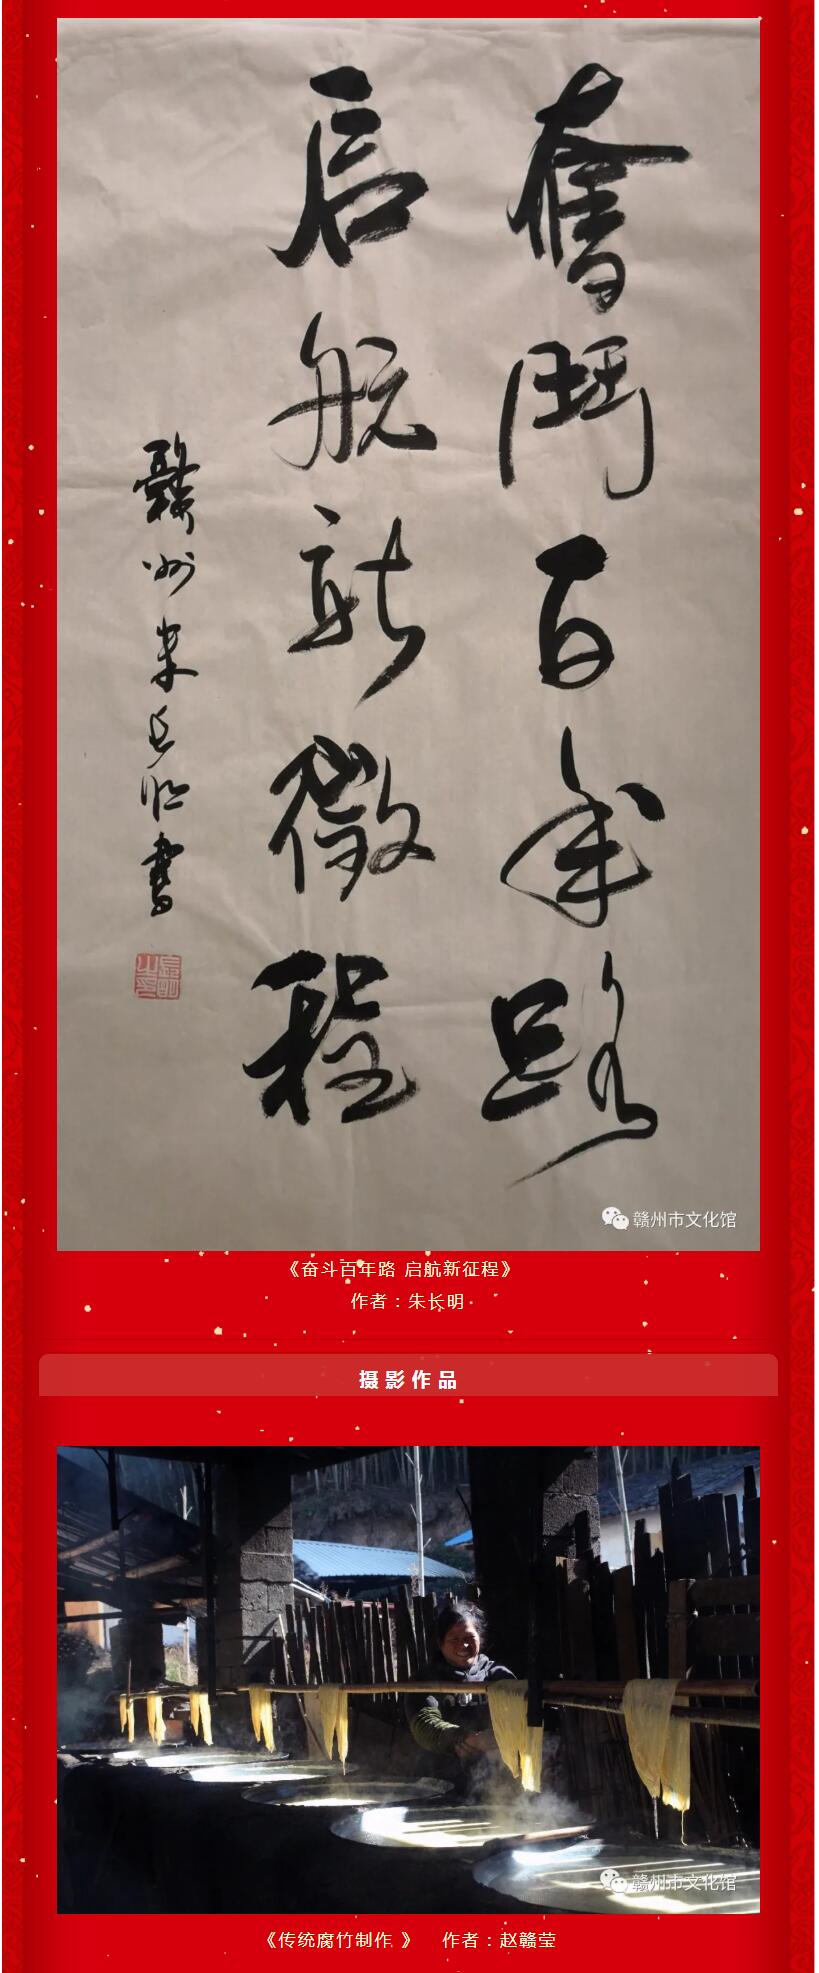 奮鬥百年路
启航新徵程
贛州朱长明書
赣州市文化馆
《奋斗百年路 启航新征程》
作者：朱长明
摄影作品
赣州市文化馆
《传统腐竹制作 》 作者：赵赣莹